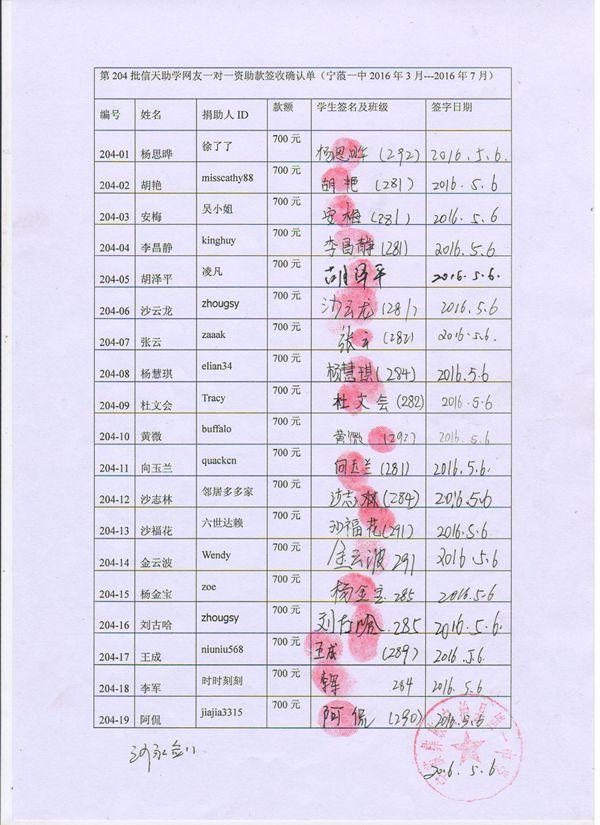 第 204 批信天助学网友一对一资助款签收确认单（宁蒗一中 2016 年 3 月---2016 年 7 月）
编号 姓名 捐助人 ID 款额 学生签名及班级 签字日期
204-01 杨思晔 徐了了 700 元 杨思晔 (292) 2016.5.6.
204-02 胡艳 misscathy88 700 元 胡艳 (281) 2016.5.6
204-03 安梅 吴小姐 700 元 安梅 (281) 2016.5.6
204-04 李昌静 kinghuy 700 元 李昌静 (281) 2016.5.6.
204-05 胡泽平 凌凡 700 元 胡泽平 2016.5.6.
204-06 沙云龙 zhougsy 700 元 沙云龙 (281) 2016.5.6
204-07 张云 zaaak 700 元 张云 (282) 2016.5.6.
204-08 杨慧琪 elian34 700 元 杨慧琪 (284) 2016.5.6
204-09 杜文会 Tracy 700 元 杜文会 (282) 2016.5.6
204-10 黄微 buffalo 700 元 黄微 (292) 2016.5.6
204-11 向玉兰 quackcn 700 元 向玉兰 (281) 2016.5.6.
204-12 沙志林 邻居多多家 700 元 沙志林 (284) 2016.5.6
204-13 沙福花 六世达赖 700 元 沙福花 (291) 2016.5.6
204-14 金云波 Wendy 700 元 金云波 291 2016.5.6
204-15 杨金宝 zoe 700 元 杨金宝 285 2016.5.6
204-16 刘古哈 zhougsy 700 元 刘古哈 285 2016.5.6.
204-17 王成 niuniu568 700 元 王成 (289) 2016.5.6.
204-18 李军 时时刻刻 700 元 李军 284 2016.5.6
204-19 阿侃 jiajia3315 700 元 阿侃 (290) 2016.5.6
2016.5.6